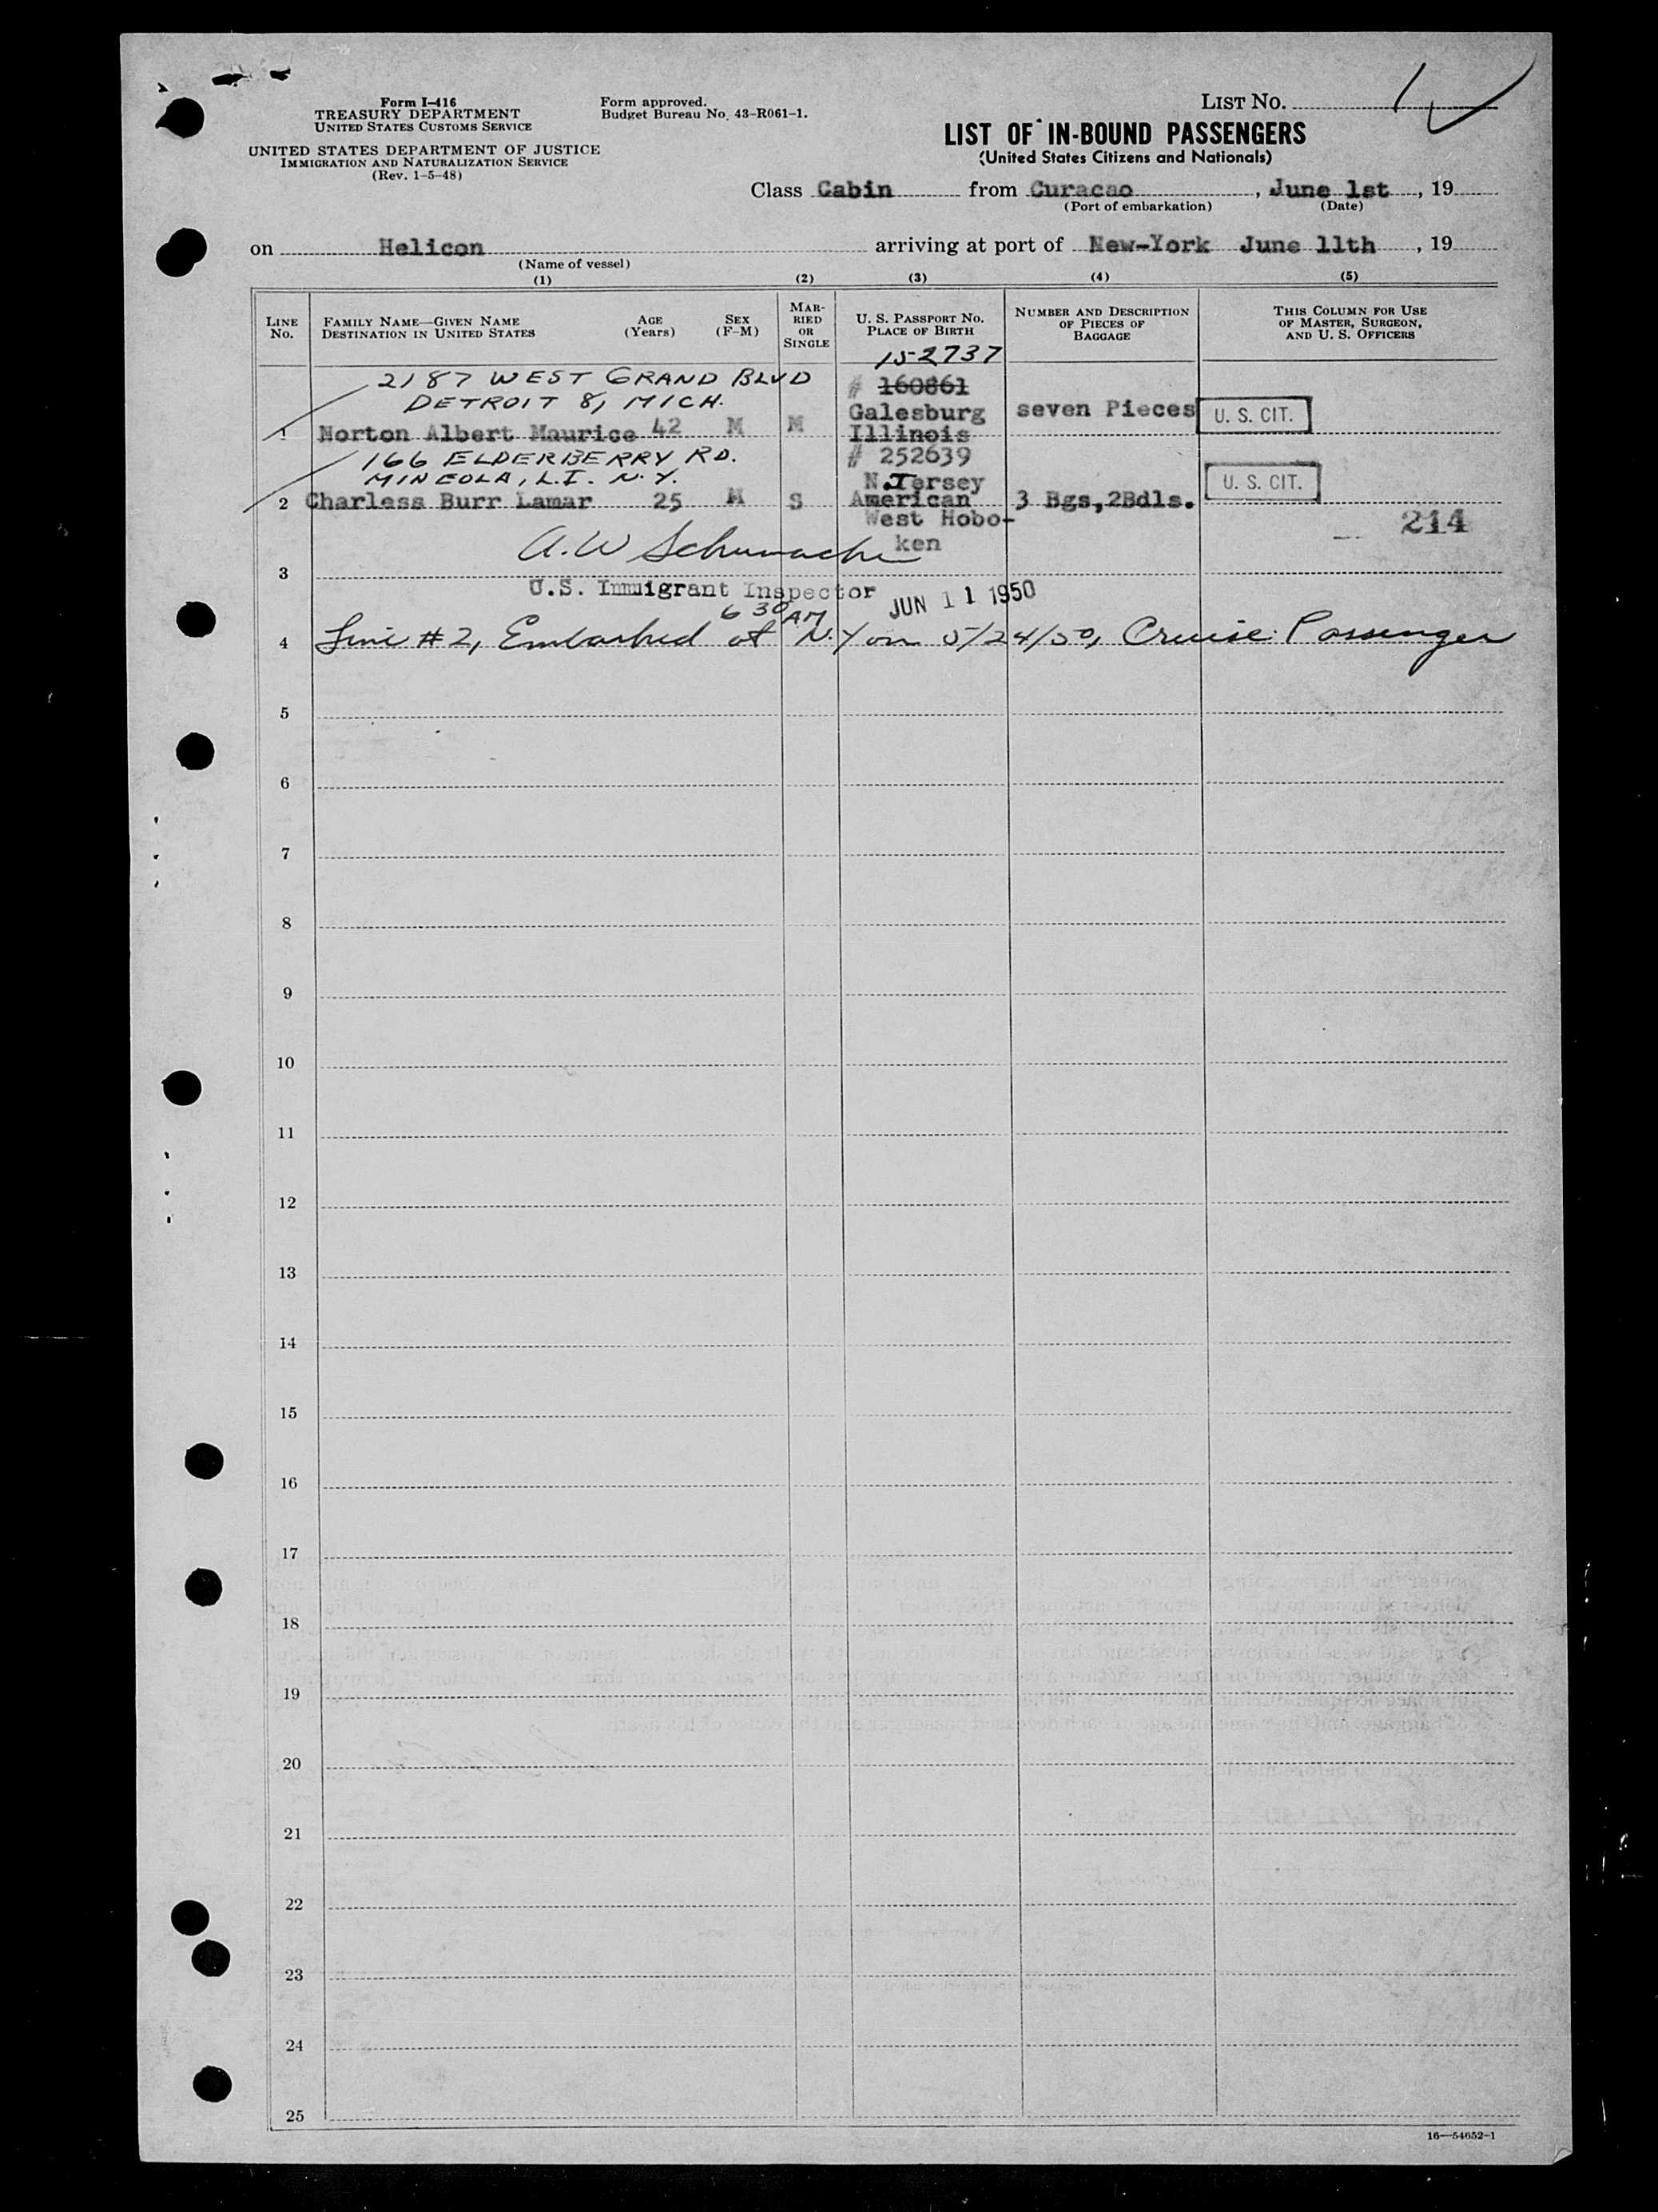 Form I-416
TREASURY DEPARTMENT
UNITED STATES CUSTOMS SERVICE
UNITED STATES DEPARTMENT OF JUSTICE
IMMIGRATION AND NATURALIZATION SERVICE
(Rev. 1-5-48)
Form approved.
Budget Bureau No. 43-R061-1.
LIST NO. 1
LIST OF IN-BOUND PASSENGERS
(United States Citizens and Nationals)
Class Cabin from Curacao, June 1st, 19
(Port of embarkation) (Date)
on Helicon arriving at port of New-York June 11th, 19
(Name of vessel)
(1) (2) (3) (4) (5)
LINE No. FAMILY NAME—GIVEN NAME DESTINATION IN UNITED STATES AGE (Years) SEX (F-M) MARRIED OR SINGLE U. S. PASSPORT NO. PLACE OF BIRTH NUMBER AND DESCRIPTION OF PIECES OF BAGGAGE THIS COLUMN FOR USE OF MASTER, SURGEON, AND U. S. OFFICERS
152737
2187 WEST GRAND BLVD # 160861
DETROIT 8, MICH. Galesburg seven Pieces U. S. CIT.
1 Norton Albert Maurice 42 M M Illinois
166 ELDERBERRY RD. # 252639
MINEOLA, L.I. N.Y. N.Jersey U. S. CIT.
2 Charless Burr Lamar 25 M S American 3 Bgs,2Bdls.
West Hobo- 214
A.W Schumache ken
3
U.S. Immigrant Inspector JUN 11 1950
6 30 AM
4 Line #2, Embarked at N.Y on 5/24/50, Cruise Passenger
5
6
7
8
9
10
11
12
13
14
15
16
17
18
19
20
21
22
23
24
25
16—54652-1